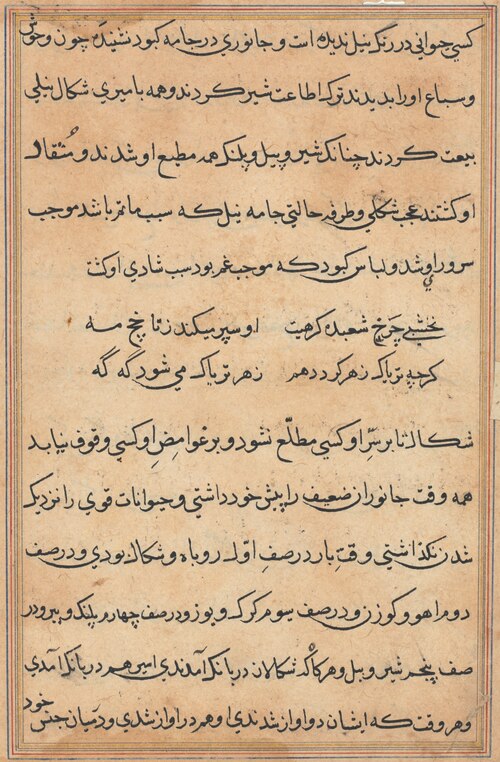 کسی جوانی در رنک نیل ندیده است و جانوری در جامه کبود نشنیده چون وحوش
و سباع اورا بدیدند ترک اطاعت شیر کردند و همه با میری شکال نیلی
بیعت کردند چنانک شیر و پیل و پلنک همه مطیع او شدند و مُنقاد
او کشتند عجب شکلی و طرفه حالتی جامه نیل که سبب ماتم باشد موجب
سرور او شد و لباس کبود که موجب غم بود سبب شادی او کشت
نخشبی چرخ شعبده کرهیت او سپر میکند ز نا نچ مه
کرچه تریاک زهر کرددهم زهر تریاک می شود که که
شکال تا بر سرِّ او کسی مطلّع نشود و بر غوامضِ او کسی وقوف نیابد
همه وقت جانوران ضعیف را پیش خود داشتی و حیوانات قوی را نزدیک
شدن نکذاشتی وقتِ بار در صفِ اوّل روباه و شکال بودی و در صف
دوم اهو و کوزن و در صف سیوم کرک و یوز و در صف چهارم پلنک و ببر و در
صف پنجم شیر و پیل و هرکاه که شکالان در بانک آمدندی او نیز هم در بانک آمدی
و هر وقت که ایشان در اواز شدندی او هم در اواز شدی و در میان جنس خود